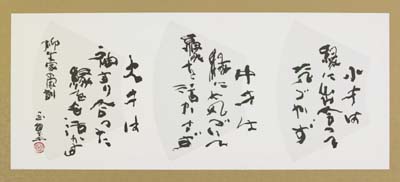 小才は
縁に出会って
気づかず
中才は
縁に気づいて
縁を活かさず
大才は
袖すり合った
縁をも活かす
柳生家家訓